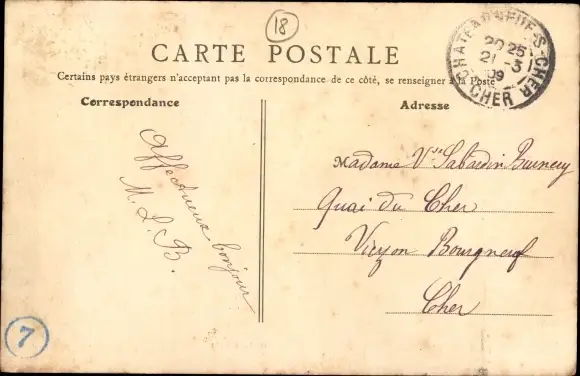 18
CARTE POSTALE
Certains pays étrangers n'acceptant pas la correspondance de ce côté, se renseigner à la Poste
CHATEAUNEUF-S-CHER
20 25
21 -3
09
CHER
Correspondance
Adresse
Affectueux bonjour
M. L. B.
Madame Vve Sabardin Burnery
Quai du Cher
Vierzon Bourgneuf
Cher
7